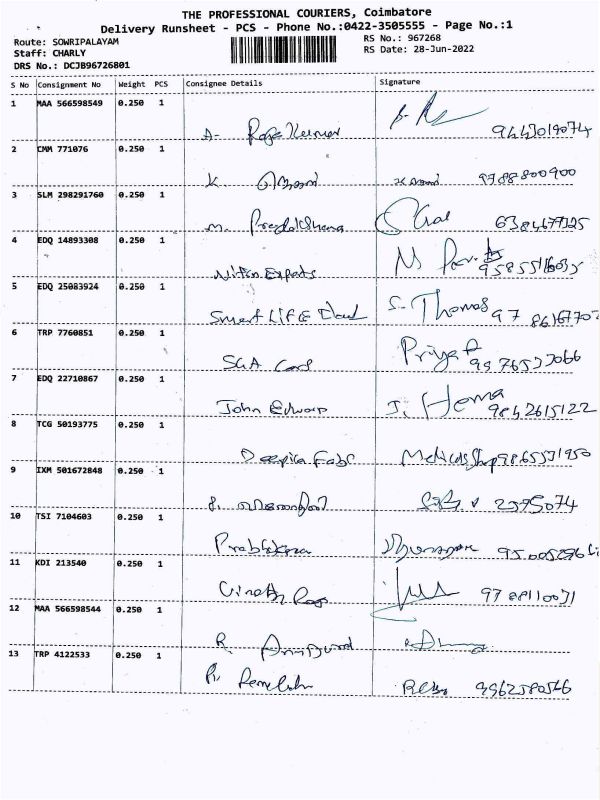 THE PROFESSIONAL COURIERS, Coimbatore
Delivery Runsheet - PCS - Phone No.:0422-3505555 - Page No.:1
Route: SOWRIPALAYAM RS No.: 967268
Staff: CHARLY RS Date: 28-Jun-2022
DRS No.: DCJB96726801
S No Consignment No Weight PCS Consignee Details Signature
1 MAA 566598549 0.250 1
A- Raja Kumar 9443019074
2 CMM 771076 0.250 1
K. 9788800900
3 SLM 298291760 0.250 1
m. 6384677325
4 EDQ 14893308 0.250 1
Nitin Expats M
5 EDQ 25083924 0.250 1
Smart Life S. Thomas
6 TRP 7760851 0.250 1
SGA Cars Priya P 9976533066
7 EDQ 22710867 0.250 1
John Edward J. Hema 9842615122
8 TCG 50193775 0.250 1
Deepika Fabs Medicals shop 9865531950
9 IXM 501672848 0.250 1
2575074
10 TSI 7104603 0.250 1
Prabhakaran
11 KDI 213540 0.250 1
Vinoth Raj 9788110071
12 MAA 566598544 0.250 1
R.
13 TRP 4122533 0.250 1
R. 9962580566